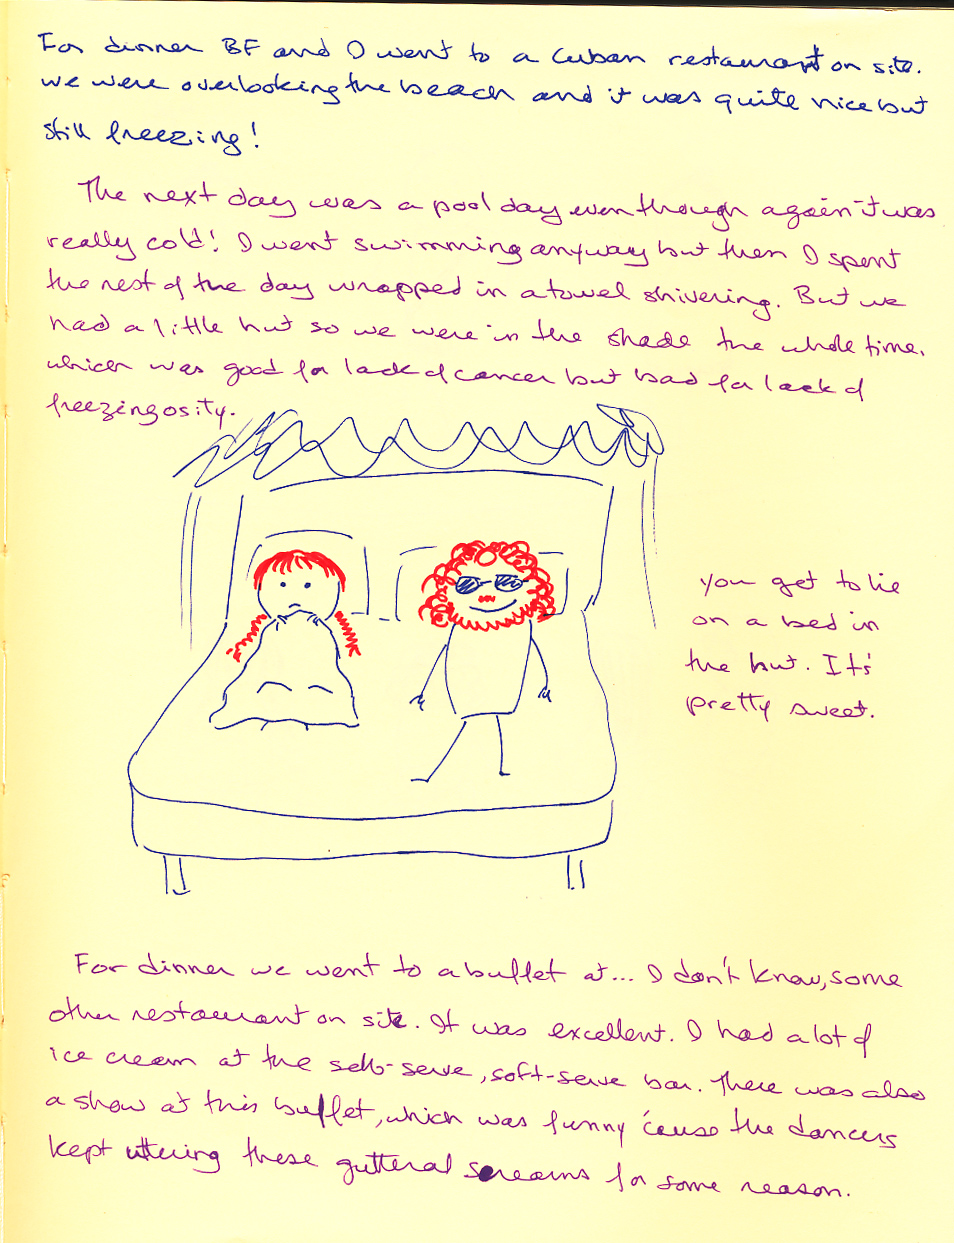 For dinner BF and I went to a Cuban restaurant on site.
we were overlooking the beach and it was quite nice but
still freezing!
The next day was a pool day even though again it was
really cold! I went swimming anyway but then I spent
the rest of the day wrapped in a towel shivering. But we
had a little hut so we were in the shade the whole time,
which was good for lack of cancer but bad for lack of
freezingosity.
you get to lie
on a bed in
the hut. It's
pretty sweet.
For dinner we went to a buffet at... I don't know, some
other restaurant on site. It was excellent. I had a lot of
ice cream at the self-serve, soft-serve bar. There was also
a show at this buffet, which was funny 'cause the dancers
kept uttering these gutteral screams for some reason.